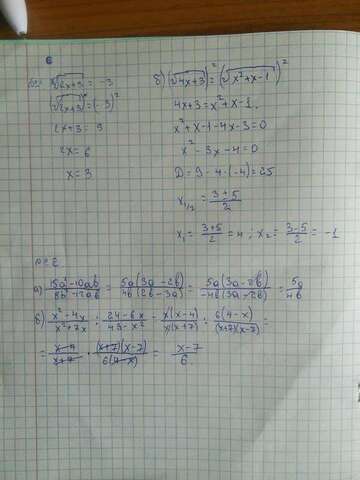 №1
√2x+3 = -3
(√2x+3)² = (-3)²
2x+3 = 9
2x = 6
x = 3
б) (√4x+3)² = (√x²+x-1)²
4x+3 = x²+x-1
x²+x-1-4x-3=0
x²-3x-4=0
D = 9-4·(-4)=25
x₁/₂ = (3±5)/2
x₁ = (3+5)/2 = 4; x₂ = (3-5)/2 = -1
№2
а) (15a²-10ab)/(8b²-12ab) = 5a(3a-2b)/4b(2b-3a) = 5a(3a-2b)/-4b(3a-2b) = 5a/4b
б) (x²-4x)/(x²+7x) : (24-6x)/(49-x²) = x(x-4)/x(x+7) : 6(4-x)/(x+7)(x-7) =
= (x-4)/(x+7) · (x+7)(x-7)/6(4-x) = (x-7)/6